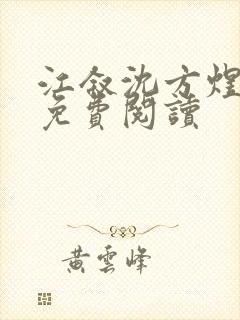 江叙沈方煜
免費閱讀
黃雲峰